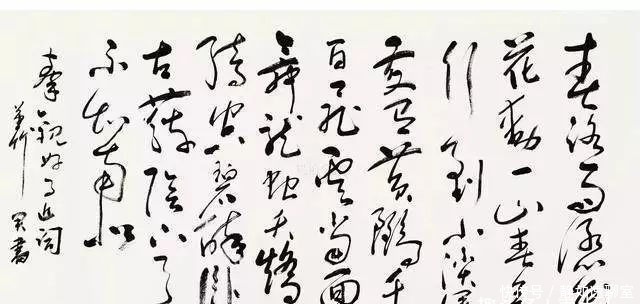 春路雨添
花动一山春
行到小溪深
处有黄鹂千
百飞云当面
舞龙蛇夭矫
转空碧醉卧
古藤阴下了
不知南北
秦观好事近词
书